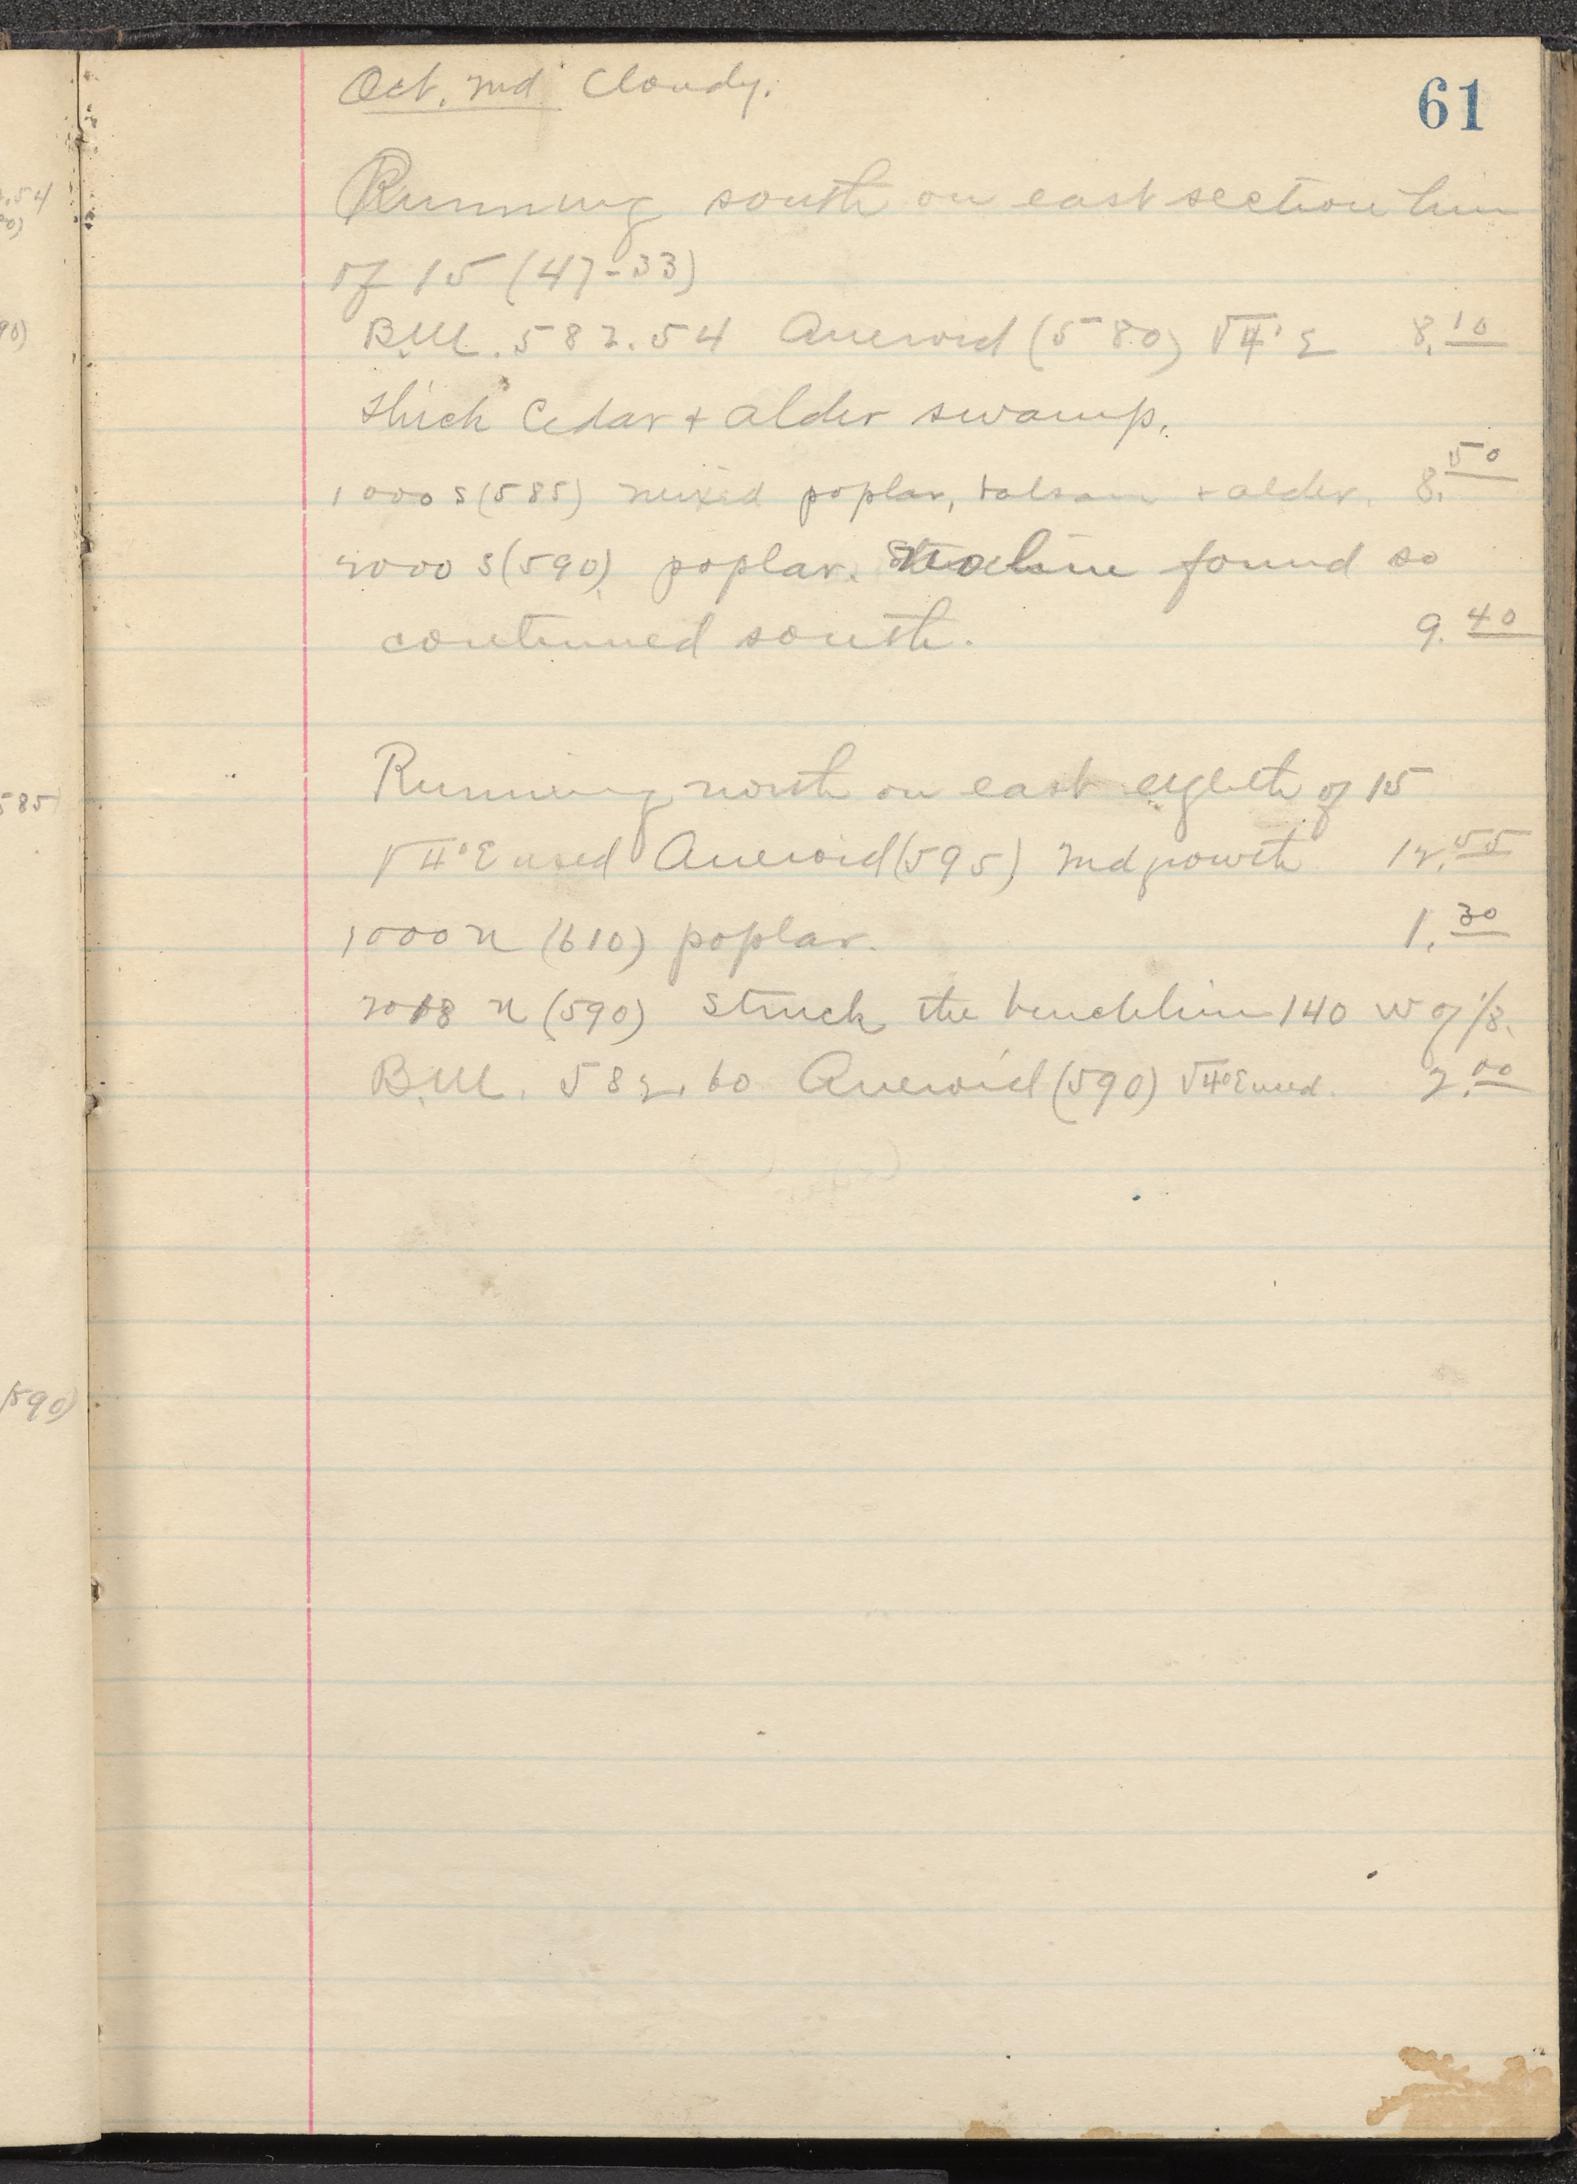 61
Oct. 2nd Cloudy.
Running south on east section line
of 15 (47-33)
B.M. 582.54 Aneroid (580) V 4° E 8.10
thick Cedar + alder swamp.
1000 S (585) mixed poplar, balsam + alder. 8.50
2000 S (590) poplar. No line found so
continued south. 9.40
Running north on east eighth of 15
V 4° E used Aneroid (595) 2nd growth 12.55
1000 N (610) poplar. 1.30
2018 N (590) Struck the benchline 140 W of 1/8.
B.M. 582.60 Aneroid (590) V 4° E used. 2.00
.54
90)
585)
(590)